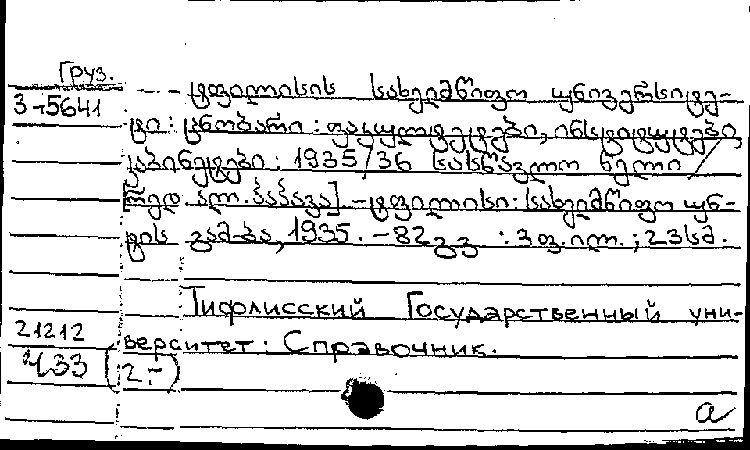 Груз.
3-5641
ტფილისის სახელმწიფო უნივერსიტე-
ტი : ცნობარი : ფაკულტეტები, ინსტიტუტები,
კაბინეტები : 1935/36 სასწავლო წელი /
[რედ. ალ. პაპავა] . – ტფილისი : სახელმწიფო უნ-
ტის გამ-ბა, 1935. – 82 გვ : 3 ფ. ილ. ; 23 სმ.
Тифлисский Государственный уни-
верситет : Справочник.
21212
433 (2.-)
а